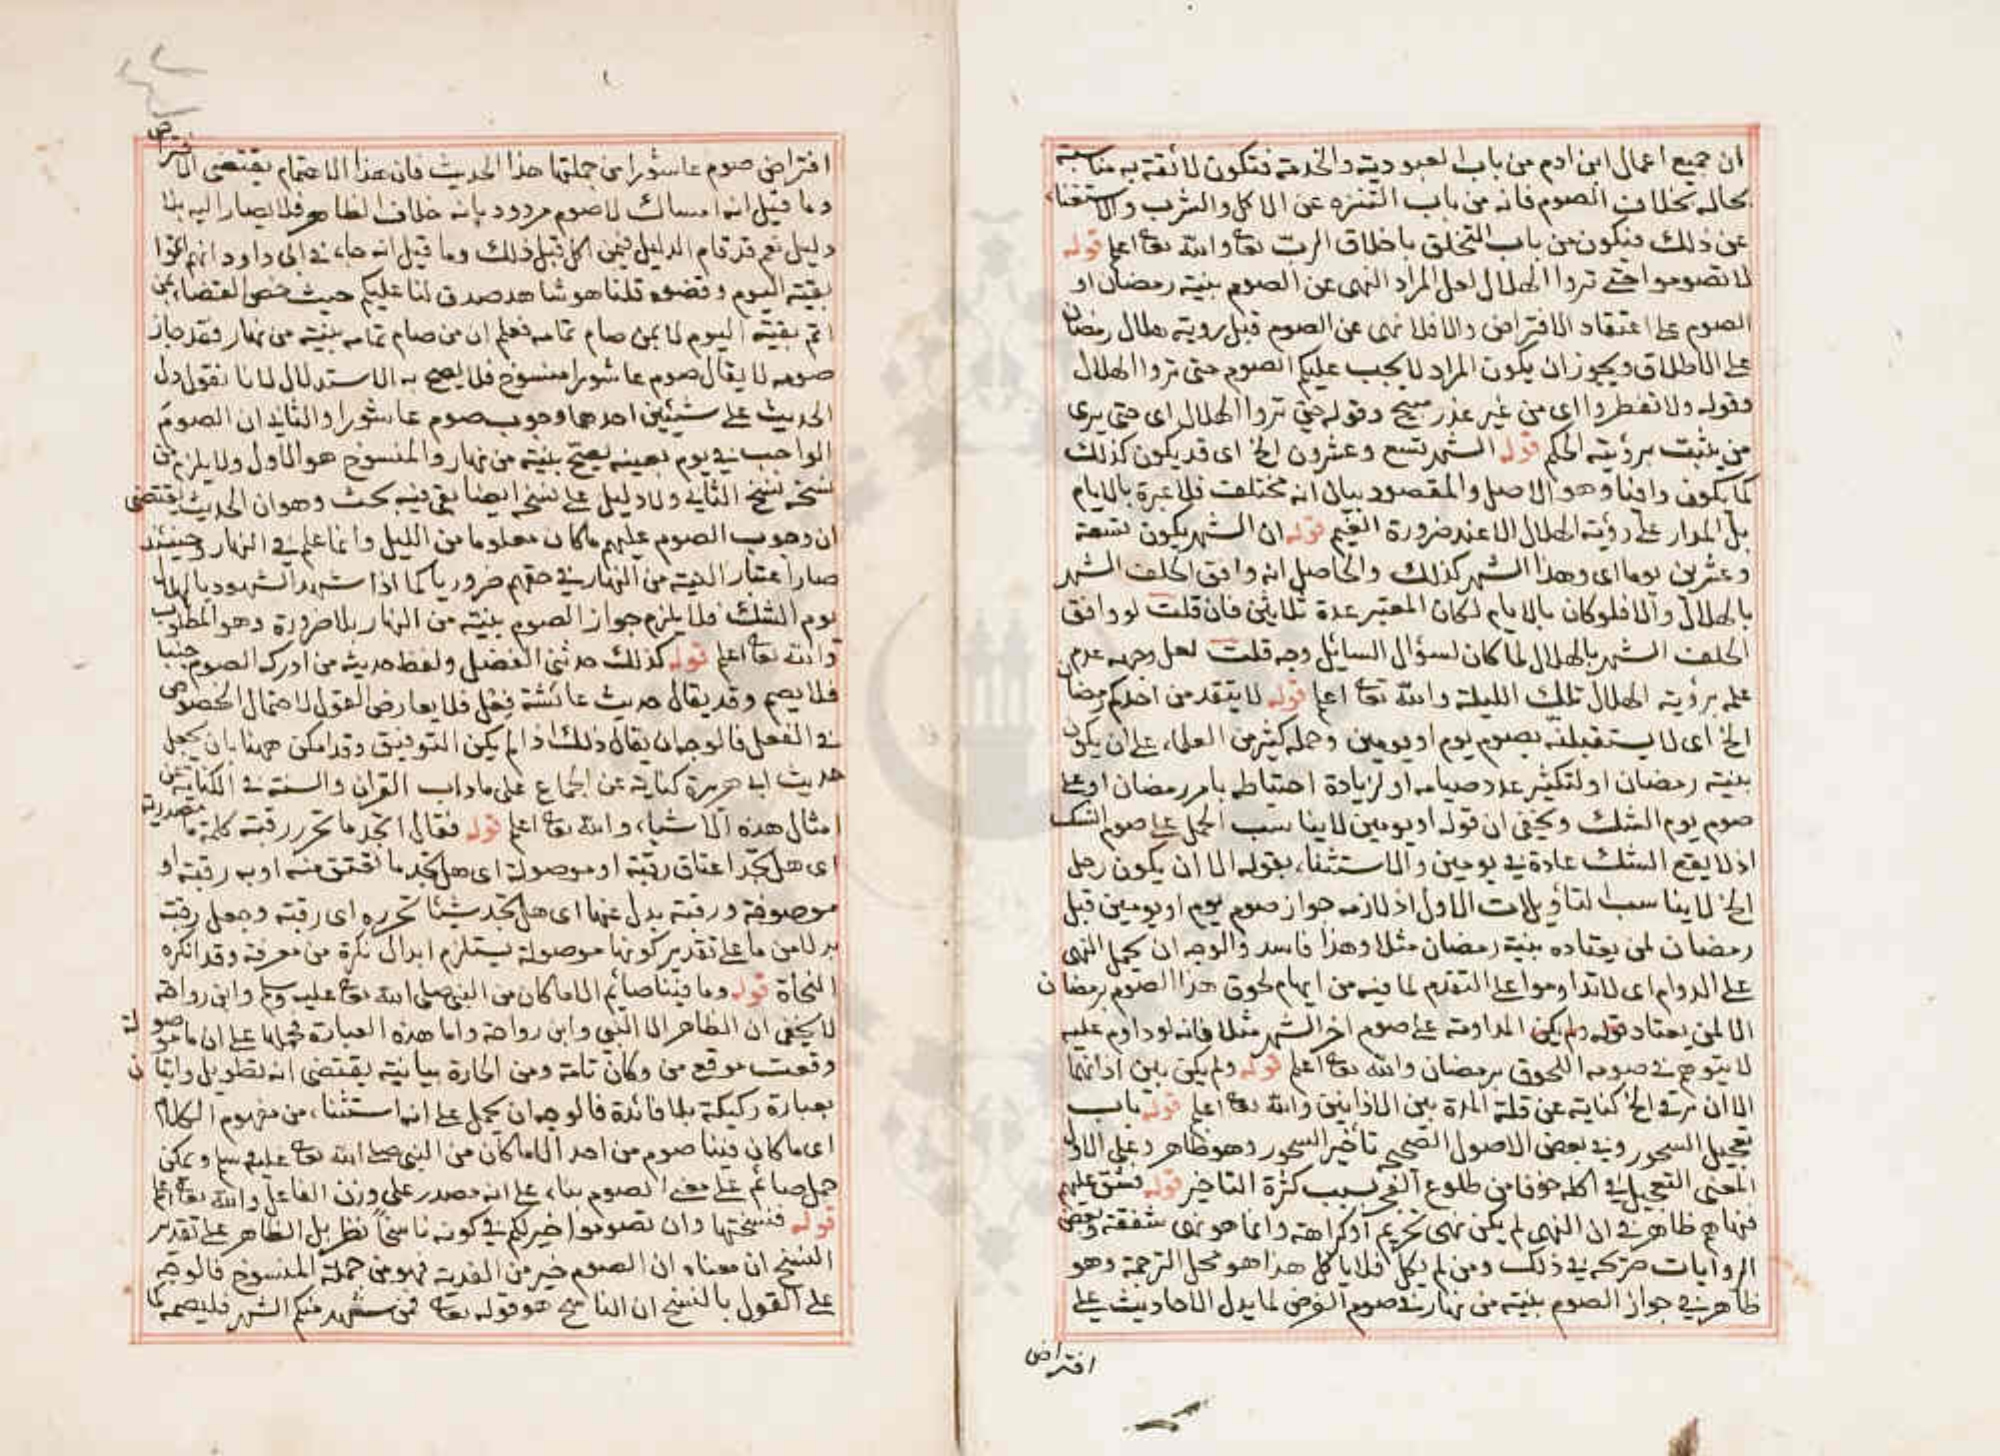 ان جميع اعمال ابن ادم من باب العبودية والخدمة فتكون لائقة به مناسبة
بحاله بخلاف الصوم فانه من باب التنزه عن الاكل والشرب والاستغناء
عن ذلك فيكون من باب التخلق باخلاق الرب تعا والله تعا اعلم قوله
لا تصوموا حتى تروا الهلال لعل المراد النهى عن الصوم بنية رمضان او
الصوم على اعتقاد الافتراض والا فلا نهى عن الصوم قبل روية هلال رمضان
على الاطلاق ويجوز ان يكون المراد لا يجب عليكم الصوم حتى تروا الهلال
وقوله ولا تفطروا اى من غير عذر مبيح وقوله حتى تروا الهلال اى حتى يرى
من يثبت برؤيته الحكم قوله الشهر تسع وعشرون الخ اى قد يكون كذلك
كما يكون وافيا وهو الاصل والمقصود بيان انه مختلف فلا عبرة بالايام
بل المدار على رؤية الهلال الا عند ضرورة الغيم قوله ان الشهر يكون تسعة
وعشرين يوما اى وهذا الشهر كذلك والحاصل انه وافق الحلف الشهر
بالهلال والا فلو كان بالايام لكان المعتبر عدة ثلاثين فان قلت لو وافق
الحلف الشهر بالهلال لما كان لسؤال السائل وجه قلت لعل وجهه عدم
علمه برؤية الهلال تلك الليلة والله تعا اعلم قوله لا يتقدمن احدكم رمضان
الخ اى لا يستقبلنه بصوم يوم او يومين وحمله كثير من العلماء على ان يكون
بنية رمضان او لتكثير عدد صيامه او لزيادة احتياطه بامر رمضان او على
صوم يوم الشك ويخفى ان قوله او يومين لا يناسب الحمل على صوم الشك
اذ لا يقع الشك عادة فى يومين والاستثناء بقوله الا ان يكون رجل
الخ لا يناسب التأويلات الاول اذ لازمه جواز صوم يوم او يومين قبل
رمضان لمن يعتاده بنية رمضان مثلا وهذا فاسد والوجه ان يحمل النهى
على الدوام اى لا تداوموا على التقدم لما فيه من ايهام لحوق هذا الصوم برمضان
الا لمن يعتاد المداومة على صوم اخر الشهر مثلا فانه لو داوم عليه
لا يتوهم فى صومه اللحوق برمضان والله تعا اعلم قوله ولم يكن بين اذانهما
الا ان يرقى الخ كناية عن قلة المدة بين الاذانين والله تعا اعلم قوله باب
تعجيل السحور وفى بعض الاصول الصحيح تأخير السحور وهو ظاهر وعلى الاول
المعنى التعجيل فى اكله خوفا من طلوع الفجر بسبب كثرة التاخير قوله فشق عليهم
فنهاهم ظاهر فى ان النهى لم يكن نهى تحريم او كراهة وانما هو نهى شفقة وبعض
الروايات صريحه فى ذلك ومن لم يأكل فلا يأكل هذا هو محل الترجمة وهو
ظاهر فى جواز الصوم بنية من نهار فى صوم الفرض لما يدل الاحاديث على
افتراض
افتراض صوم عاشورا من جملتها هذا الحديث فان هذا الاهتمام يقتضى الافتراض
وما قيل انه امساك لا صوم مردود بانه خلاف الظاهر فلا يصار اليه بلا
دليل نعم قد قام الدليل فيمن اكل قبل ذلك وما قيل انه جاء فى ابى داود انهم اتموا
بقية اليوم وقضوه قلنا هو شاهد صدق لنا عليكم حيث خص القضاء بمن
اتم بقية اليوم لا بمن صام تمامه فعلم ان من صام تمامه بنية من نهار فقد جاز
صومه لا يقال صوم عاشورا منسوخ فلا يصح به الاستدلال لانا نقول دل
الحديث على شيئين احدهما وجوب صوم عاشورا والثانى ان الصوم
الواجب فى يوم بعينه يصح بنية من نهار والمنسوخ هو الاول ولا يلزم من
نسخه نسخ الثانى ولا دليل على نسخه ايضا بقى فيه بحث وهو ان الحديث يقتضى
ان وجوب الصوم عليهم ما كان معلوما من الليل وانما علم فى النهار وحينئذ
صار اعتبار النية من النهار فى حقهم ضروريا كما اذا شهد الشهود بالهلال
يوم الشك فلا يلزم جواز الصوم بنية من النهار بلا ضرورة وهو المطلوب
والله تعا اعلم قوله كذلك حدثنى الفضل ولفظ حديثه من ادركه الصوم جنبا
فلا يصم وقد يقال حديث عائشة فعل فلا يعارض القول لاحتمال الخصوص
فى الفعل فالوجه ان يقال ذلك اذا لم يكن التوفيق وقد امكن ههنا بان يجعل
حديث ابى هريرة كناية عن الجماع على ما داب القران والسنة فى الكناية عن
امثال هذه الاشياء والله تعا اعلم قوله فقال اتجد ما تحرر رقبة كلمة ما مصدرية
اى هل تجد اعتاق رقبة او موصولة اى هل تجد ما تعتق منه او به رقبة او
موصوفة ورقبة بدل عنها اى هل تجد شيئا تحرره اى رقبة وجعل رقبة
بدلا من ما على تقدير كونها موصولة يستلزم ابدال نكرة من معرفة وقد انكره
النحاة قوله وما فينا صائم الا ما كان من النبى صلى الله تعا عليه وسلم وابن رواحة
لا يخفى ان الظاهر الا النبى وابن رواحة واما هذه العبارة فحملها على ان ما موصولة
وقعت موقع من وكان تامة ومن الجارة بيانية يقتضى انه تطويل واتيان
بعبارة ركيكة بلا فائدة فالوجه ان يحمل على انه استثناء من مفهوم الكلام
اى ما كان فينا صوم من احد الا ما كان من النبى صلى الله تعا عليه وسلم ويمكن
حمل صائم على معنى الصوم بناء على انه مصدر على وزن الفاعل والله تعا اعلم
قوله فنسختها وان تصوموا خير لكم فى كونه ناسخا نظر بل الظاهر على تقدير
النسخ ان معناه ان الصوم خير من الفدية فهو من جملة المنسوخ فالوجه
على القول بالنسخ ان الناسخ هو قوله تعا فمن شهد منكم الشهر فليصمه كما